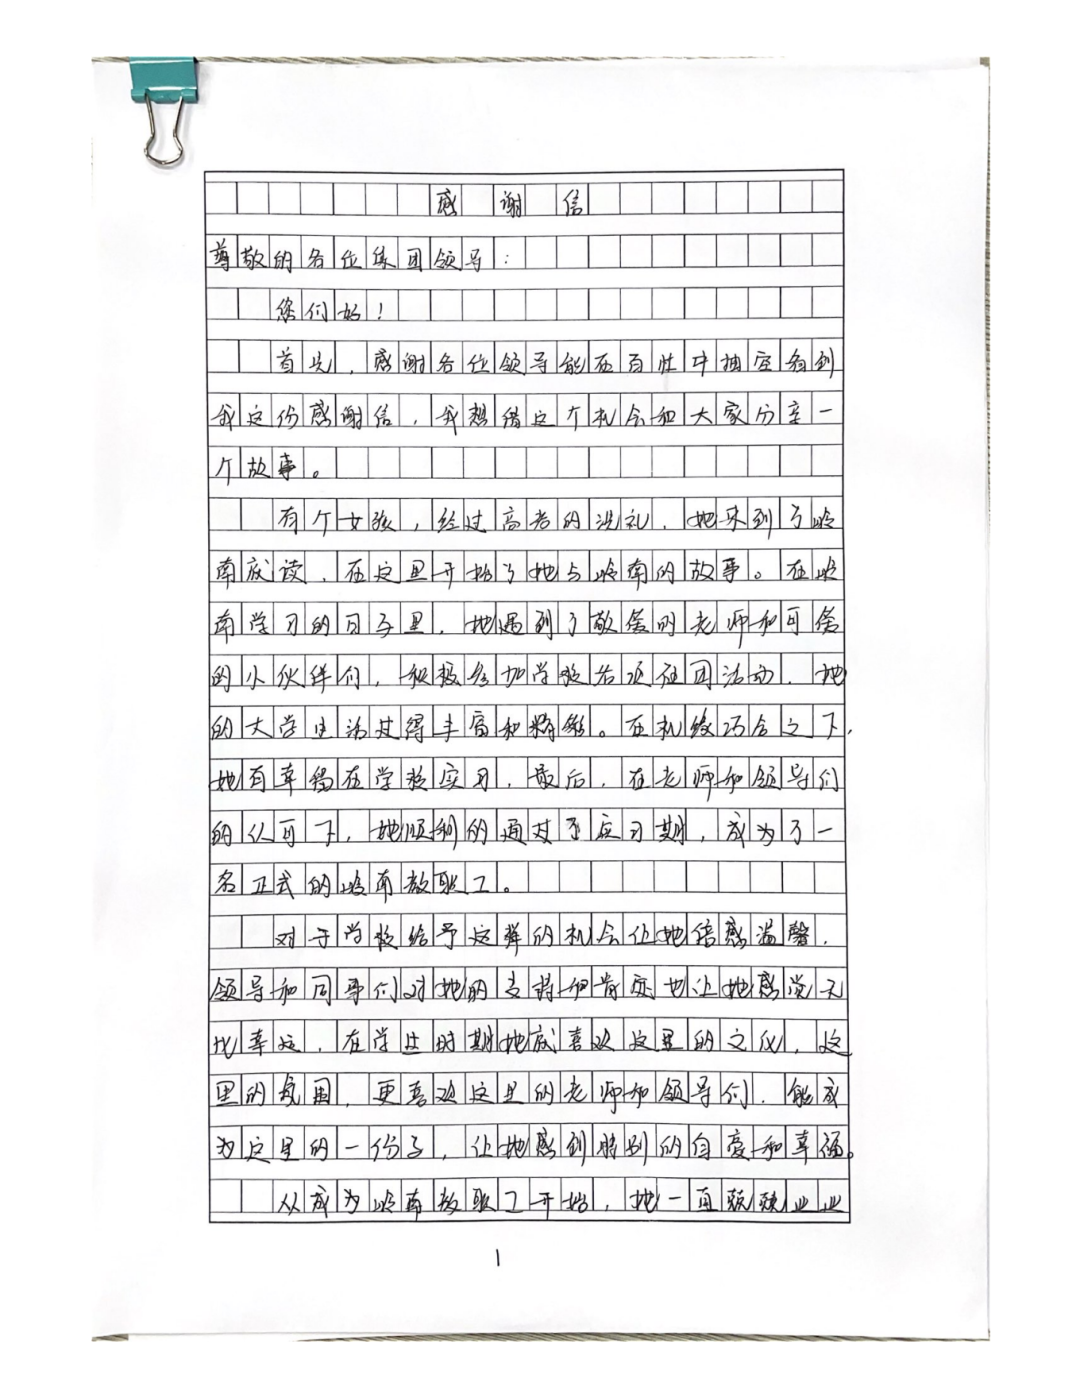 感谢信
尊敬的各位集团领导：
您们好！
首先，感谢各位领导能在百忙中抽空看到
我这份感谢信，我想借这个机会和大家分享一
个故事。
有个女孩，经过高考的洗礼，她来到了岭
南就读，在这里开始了她与岭南的故事。在岭
南学习的日子里，她遇到了敬爱的老师和可爱
的小伙伴们，积极参加学校各项社团活动，她
的大学生活过得丰富和精彩。在机缘巧合之下，
她有幸留在学校实习，最后，在老师和领导们
的认可下，她顺利的通过了实习期，成为了一
名正式的岭南教职工。
对于学校给予这样的机会让她倍感温馨，
领导和同事们对她的支持和肯定也让她感觉无
比幸运，在学生时期她就喜欢这里的文化，这
里的氛围，更喜欢这里的老师和领导们，能成
为这里的一份子，让她感到特别的自豪和幸福。
从成为岭南教职工开始，她一直兢兢业业
1